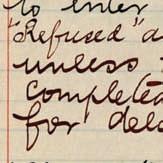 to enter
"Refused" a
unless
completed
for del